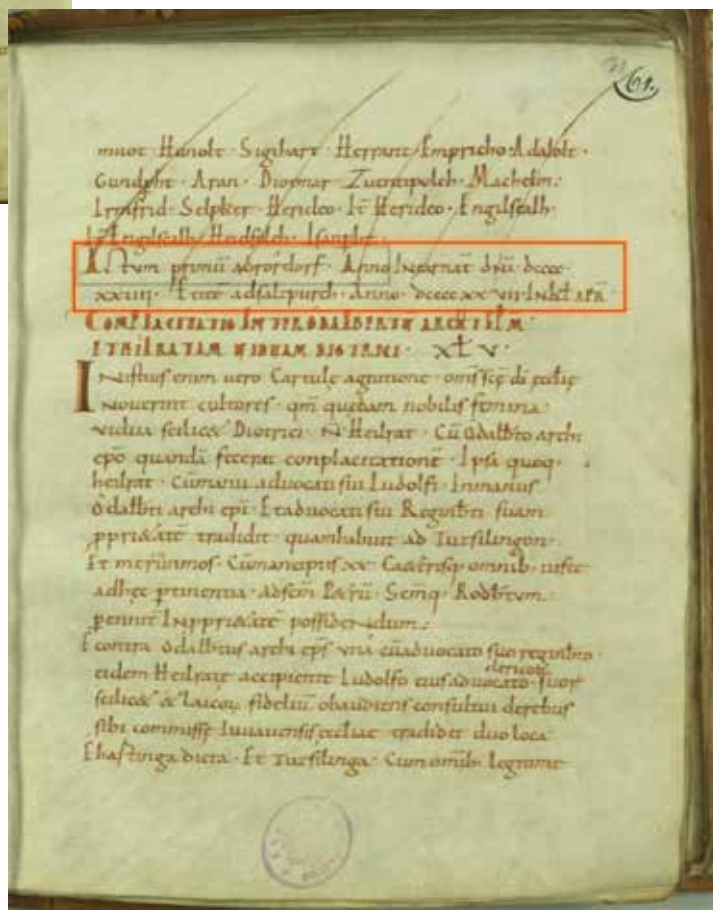 61.
Hanolt · Sigihart · Herrant · Empricho · Adalolt ·
Gundpht · Aran · Diotmar · Zuentipolch · Machelm :
Irmfrid · Selpker · Herideo · It Herideo · Engilscalh ·
It Engilscalh · Heidfolch · Isanpht ·
Actum primū ad rordorf · Anno Incarnat dnī dcccc
xxiiii · Et itē ad salzpurch · Anno · dcccc xx vii Indict
COMPLACITATIO INTER ODALBERTŪ ARCHI EPM
ET HILRATAM UIDUAM DIOTRICI · XLV ·
Iustius enim uero Cartule agnitione · omīs scē dī ecclę
Nouerint cultores · qm̄ quędam nobilis femina
vidua scilic& Diotrici · N̄ Heilrat · Cū Odalbto archi
epō quandā fecerat conplacitationē · Ipsa quoq ·
heilrat · Cūmanu aduocati sui Ludolfi · Inmanus
Odalbti archi epī · Et aduocati sui Reginbti suam
ppri&atē tradidit · quamhabuit ad Turslingon ·
Cūmancipiis xx · omnib · iuste
adhęc pertinentia · Adscm̄ P&rū · Scm̄q · Rodbtvm ·
pennit Inppri&atē possidendum :
Econtra Odalbtus archi epś unā cūaduocato suo reginbto ·
eidem Heilrate accipiente Ludolfo eius aduocato · suor
clericor
scilic& & laicor fidelium obaudiens consultui derebus
sibi commisse Iuuauensis ecclae tradidit duo loca
Ehastinga dicta · Et Turslinga · Cum omib legitime